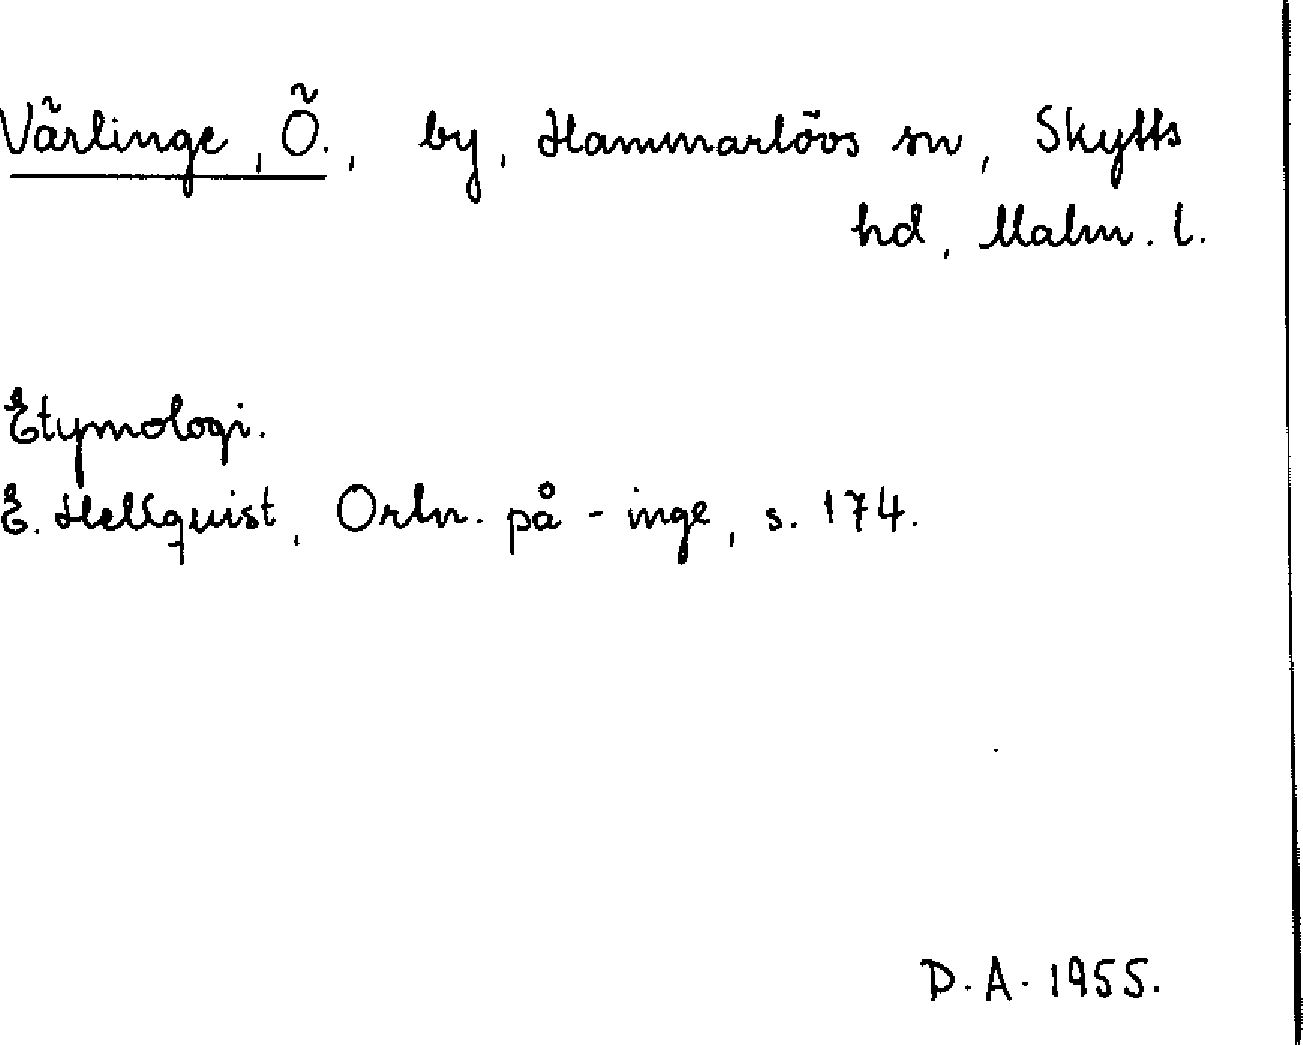 Värlinge, Ö., by, Hammarlövs sn, Skytts
hd, Malm. l.
Etymologi.
E. Hellquist, Ortn. på -inge, s. 174.
D. A. 1955.